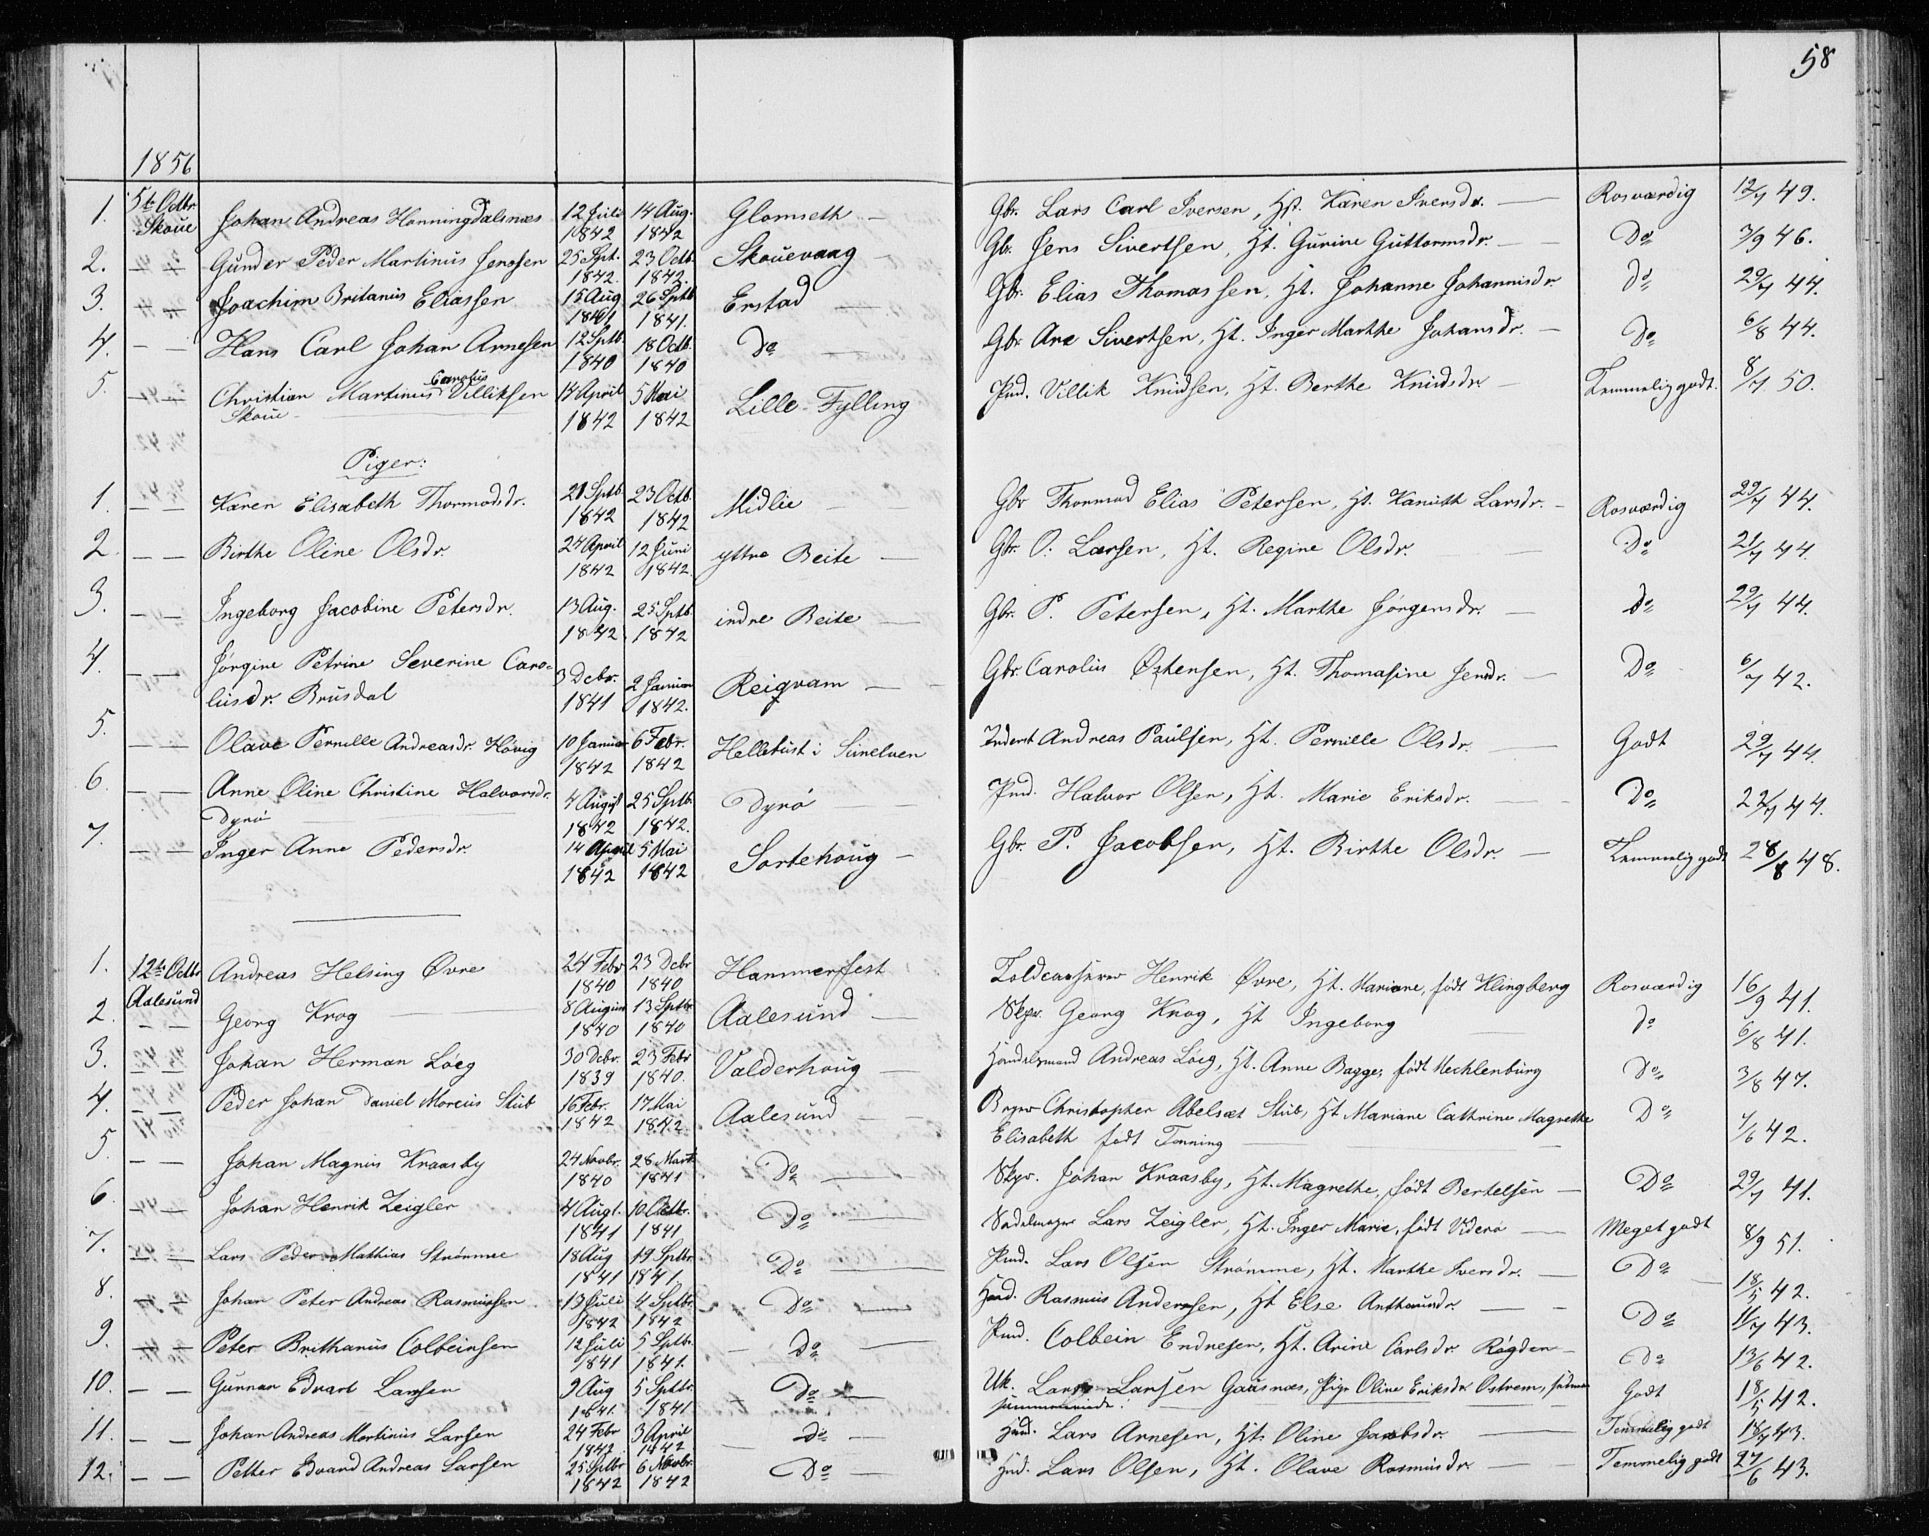 58
1856
1. 5te Octbr. Skoue Johan Andreas Honningdalsnæs 12 Juli 1842 14 Aug. 1842 Glomseth Gbr. Lars Carl Iversen, Hst. Karen Iversdr. Rosværdig 12/7 49.
2. Gunder Peder Martinus Jensen 25 Spt. 1842. 23 Octb. 1842 Skouevaag Gbr. Jens Sivertsen, Ht. Gurine Guttormsdr. Do 3/9 46.
3. Joachim Britanus Eliassen 15 Aug 1841 26 Sptb. 1841. Erstad Gbr. Elias Thomassen, Ht. Johanne Johannisdr. Do 29/7 44.
4. Hans Carl Johan Arnesen 12 Sptb. 1840 18 Octb. 1840 Do Gbr. Arne Sivertsen, Ht. Inger Marthe Johansdr. Do 6/8 44.
5. Christian Martinus Carolus Villiksen Skoue 14 April 1842 5 Mai 1842 Lille-Fylling Pmd. Villik Knudsen, Ht. Berthe Knudsdr. Temmelig godt. 8/7 50.
Piger:
1. Karen Elisabeth Thormodsdr. 21 Sptb. 1842 23 Octb. 1842 Midlie Gbr Thormod Elias Petersen, Ht. Kanuth Larsdr. Rosværdig 29/7 44.
2. Birthe Oline Olsdr. 24 April 1842 12 Juni 1842. yttre Beite Gbr. O. Larsen, Ht. Regine Olsdr. Do 21/7 44.
3. Ingeborg Jacobine Petersdr. 13 Aug. 1842 25 Sptb. 1842 indre Beite Gbr. P. Petersen, Ht. Marthe Jørgensdr. Do 29/7 44.
4. Jørgine Petrine Severine Caro-
lusdr. Brusdal 3 Debr. 1841 2 Januar 1842. Reiqvam Gbr. Carolus Østensen, Ht. Thomasine Jensdr. Do 6/7 42.
5. Olave Pernille Andreasdr. Hövig 10 Januar 1842 6 Febr. 1842 Hellebust i Sunelven Inderst Andreas Paulsen, Ht. Pernille Olsdr. Godt 29/7 44.
6. Anne Oline Christine Halvorsdr. Dyrö 4 August 1842 25 Sptb. 1842. Dyrö Pmd. Halvor Olsen, Ht. Marie Eriksdr. Do 22/7 44.
7. Inger Anne Pedersdr. 14 April 1842 5 Mai 1842 Sortehoug Gbr. P. Jacobsen, Ht. Birthe Olsdr. Temmelig godt 28/8 48.
1. 12te Octbr Aalesund Andreas Helsing Øvre 24 Febr 1840 23 Debr 1840 Hammerfest Henrik Øvre, Ht. Mariane, født Klingberg Rosværdig 16/9 41.
2. Georg Krog 8 August 1840 13 Sptbr 1840 Aalesund Skpr. Georg Krog, Ht Ingeborg Do 6/8 41.
3. Johan Herman Löeg 30 Debr. 1839 23 Febr 1840. Valderhoug Handelsmand Andreas Löeg, Ht. Anne Bagge, født Mechlenburg Do 3/8 47.
4. Peder Johan Daniel Morcus Stub 16 Febr. 1842 17 Mai 1842 Aalesund Christopher Abelsæt Stub, Ht Mariane Cathrine Magrethe Do 7/6 42.
Elisabeth født Tonning
5. Johan Magnus Kraasby 24 Novbr. 1840 28 Marts 1841 Do Skpr. Johan Kraasby, Ht. Magrethe, født Bertelsen Do 29/7 41.
6. Johan Henrik Zeigler 4 Augt. 1841 10 Octbr. 1841 Do Sadelmager Lars Zeigler, Ht. Inger Marie, født Viderø Meget godt 8/9 51.
7. Lars Peder Mathias Strömme 18 Aug 1841 19 Sptbr. 1841. Do Pmd. Lars Olsen Strömme, Ht. Marthe Iversdr. Do 18/5 42.
8. Johan Peter Andreas Rasmussen 13 Juli 1842 4 Sptbr. 1842 Do Hmd. Rasmus Andersen, Ht Else Do 11/7 43.
9. Peter Brithanus Colbeinsen 12 Juli 1841 5 Sptbr. 1841. Do Pmd. Colbein Endresen, Ht. Arine Carlsdr. Rögden Do 13/6 42.
10. Gunnar Edvart Larsen 9 Aug 1841. 5 Sptbr. 1841 Do Uk. Lars Larsen Gausnæs, Pige Oline Eriksdr. Ostrem, Godt 18/5 42.
11. Johan Andreas Martinus Larsen 24 Febr 1842 3 April 1842 Do Hmd. Lars Arnesen, Ht. Oline Jacobsdr. Temmelig godt 43.
12. Petter Edvard Andreas Larsen 25 Sptbr 1842 6 Novbr. 1842 Do Hmd. Lars Olsen, Ht. Olave Rasmusdr. Temmelig godt 27/6 43.